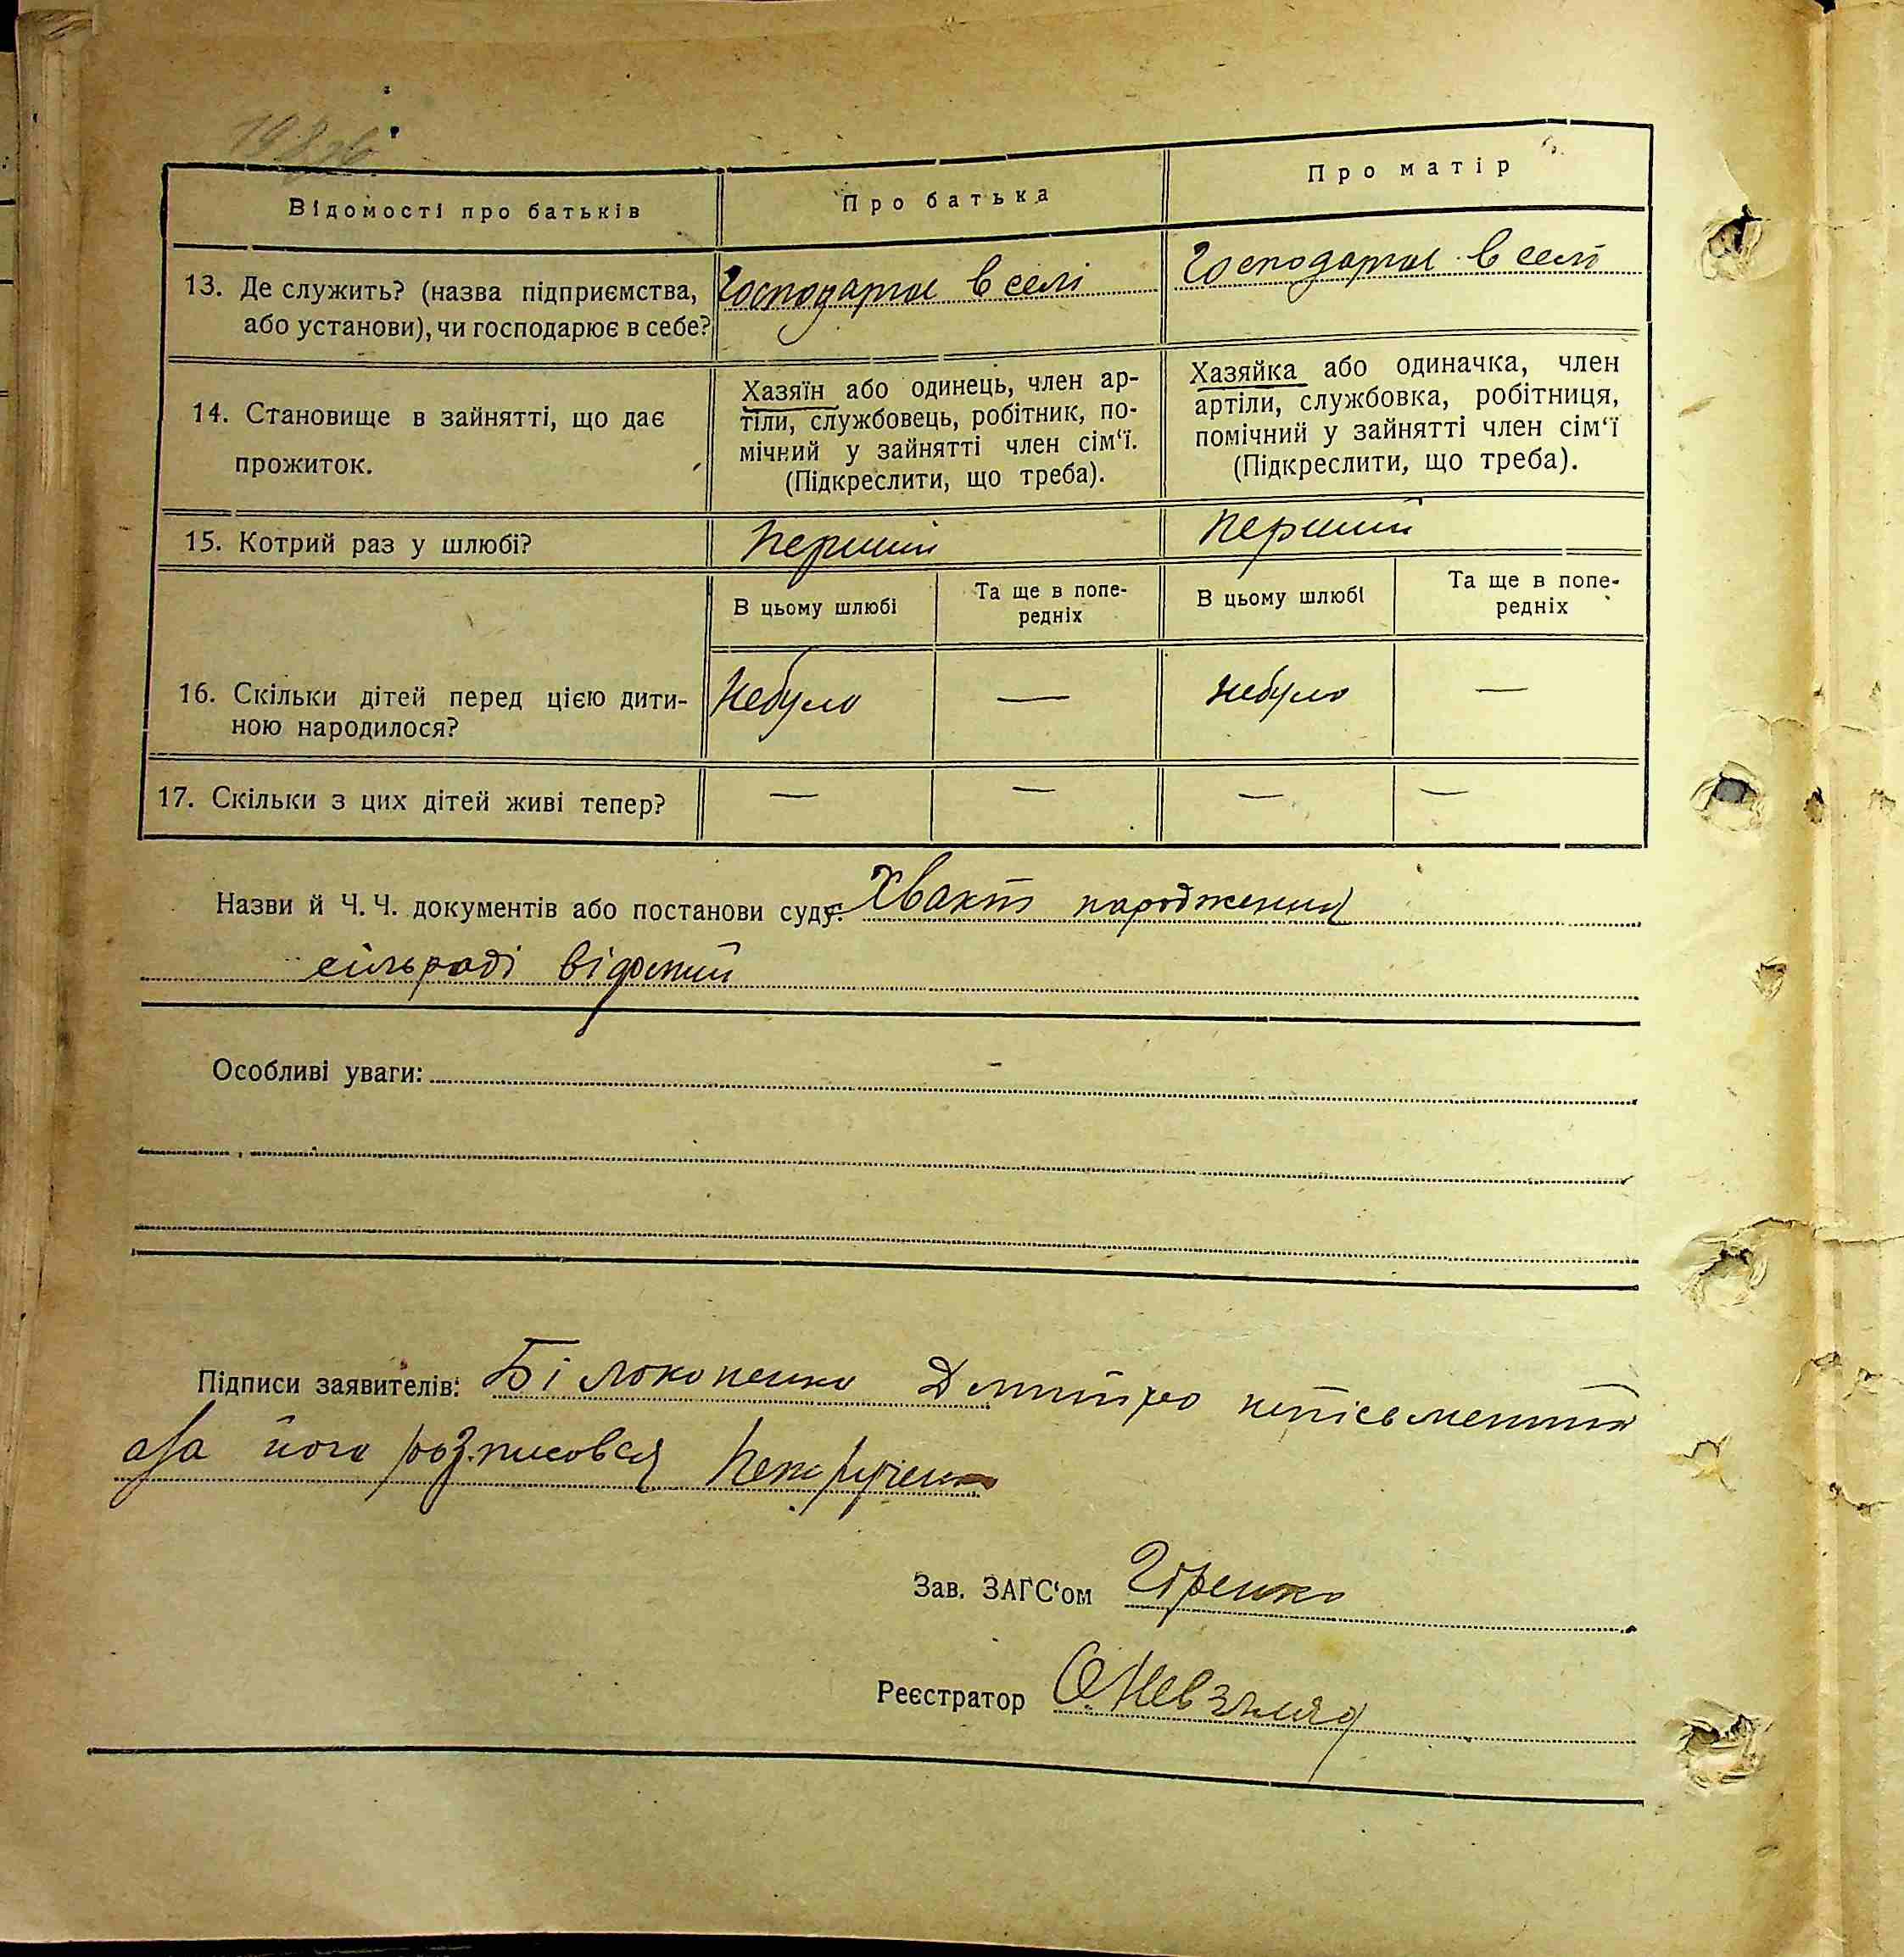 Відомості про батьків
Про батька
Про матір
13. Де служить? (назва підприємства,
або установи), чи господарює в себе?
Господарює в селі
Господарює в селі
14. Становище в зайнятті, що дає
прожиток.
Хазяїн або одинець, член ар-
тіли, службовець, робітник, по-
мічний у зайнятті член сім‘ї.
(Підкреслити, що треба).
Хазяйка або одиначка, член
артіли, службовка, робітниця,
помічний у зайнятті член сім‘ї
(Підкреслити, що треба).
15. Котрий раз у шлюбі?
Перший
Перший
В цьому шлюбі
Та ще в попе-
редніх
В цьому шлюбі
Та ще в попе-
редніх
16. Скільки дітей перед цією дити-
ною народилося?
Небуло
—
Небуло
—
17. Скільки з цих дітей живі тепер?
—
—
—
—
Назви й Ч. Ч. документів або постанови суду: Хвакт народження
сільраді відомий
Особливі уваги:
Підписи заявителів: Білоконенко Дмитро неписьменний
за його розписовся
Зав. ЗАГС‘ом
Реєстратор